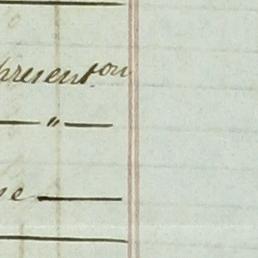 present on
— " —